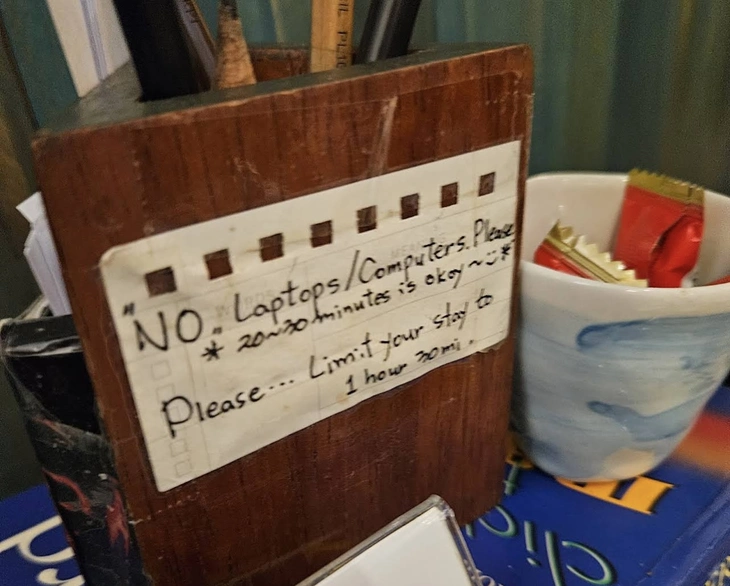 "NO" Laptops/Computers. Please
* 20~30 minutes is okay ~ *
Please... Limit your stay to
1 hour 30mi.